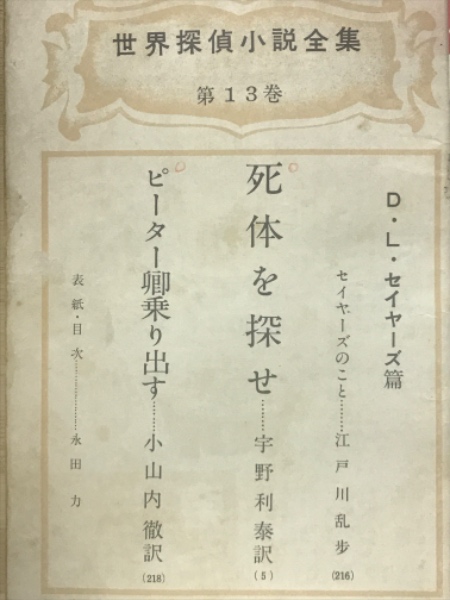 世界探偵小説全集
第13巻
D・L・セイヤーズ篇
セイヤーズのこと………江戸川乱歩(216)
死体を探せ………宇野利泰訳(5)
ピーター卿乗り出す………小山内徹訳(218)
表紙・目次………………永田力